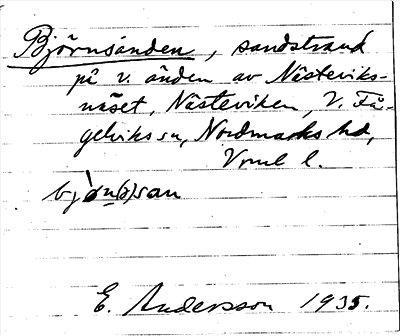 Björnsånden, sandstrand
på v. änden av Nästeviks-
näset, Nästeviken, V. Få-
gelviks sn, Nordmarks hd,
Vrml l.
E. Andersson 1935.